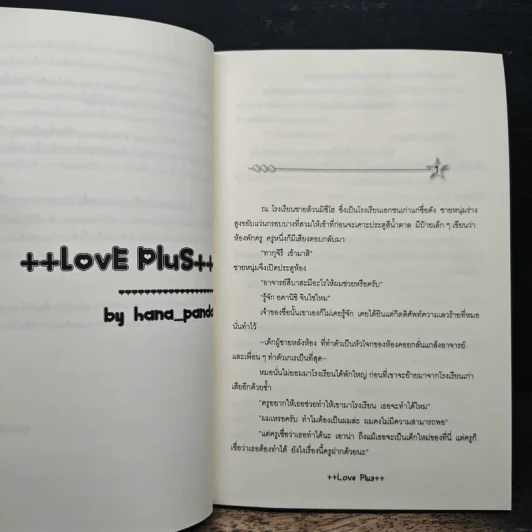 ++LovE PluS++
by hana_panda
1
ณ โรงเรียนชายล้วนมิซึโฮ ซึ่งเป็นโรงเรียนเอกชนเก่าแก่ชื่อดัง ชายหนุ่มร่าง
สูงขยับแว่นกรอบบางที่สวมให้เข้าที่ก่อนจะเคาะประตูสีน้ำตาล มีป้ายเล็ก ๆ เขียนว่า
ห้องพักครู ครู่หนึ่งก็มีเสียงตอบกลับมา
"ทากุจิรึ เข้ามาสิ"
ชายหนุ่มจึงเปิดประตูห้อง
"อาจารย์สึบาสะมีอะไรให้ผมช่วยหรือครับ"
"รู้จัก อคานิชิ จินใช่ไหม"
เจ้าของชื่อนั้นเขาเองก็ไม่เคยรู้จัก เคยได้ยินแต่กิตติศัพท์ความเลวร้ายที่หมอ
นั่นทำไว้
~เด็กผู้ชายหลังห้อง ที่ทำตัวเป็นหัวโจกของห้องคอยกลั่นแกล้งอาจารย์
และเพื่อน ๆ ทำตัวเกเรเป็นที่สุด~
หมอนั่นไม่ยอมมาโรงเรียนได้พักใหญ่ ก่อนที่เขาจะย้ายมาจากโรงเรียนเก่า
เสียอีกด้วยซ้ำ
"ครูอยากให้เธอช่วยทำให้เขามาโรงเรียน เธอจะทำได้ไหม"
"ผมเหรอครับ ทำไมต้องเป็นผมล่ะ ผมคงไม่มีความสามารถพอ"
"แต่ครูเชื่อว่าเธอทำได้นะ เอาน่า ถึงแม้เธอจะเป็นเด็กใหม่ของที่นี่ แต่ครูก็
เชื่อว่าเธอต้องทำได้ ยังไงเรื่องนี้ครูฝากด้วยนะ"
++Love Plus++